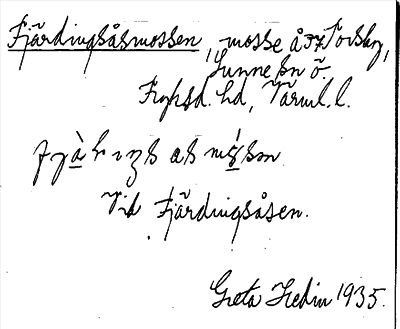 Fjärdingsåsmossen, mosse å 57 Torsby,
Sunne sn ö.
Fryksd. hd, Värml. l.
Vid Fjärdingsåsen.
Greta Hedin 1935.